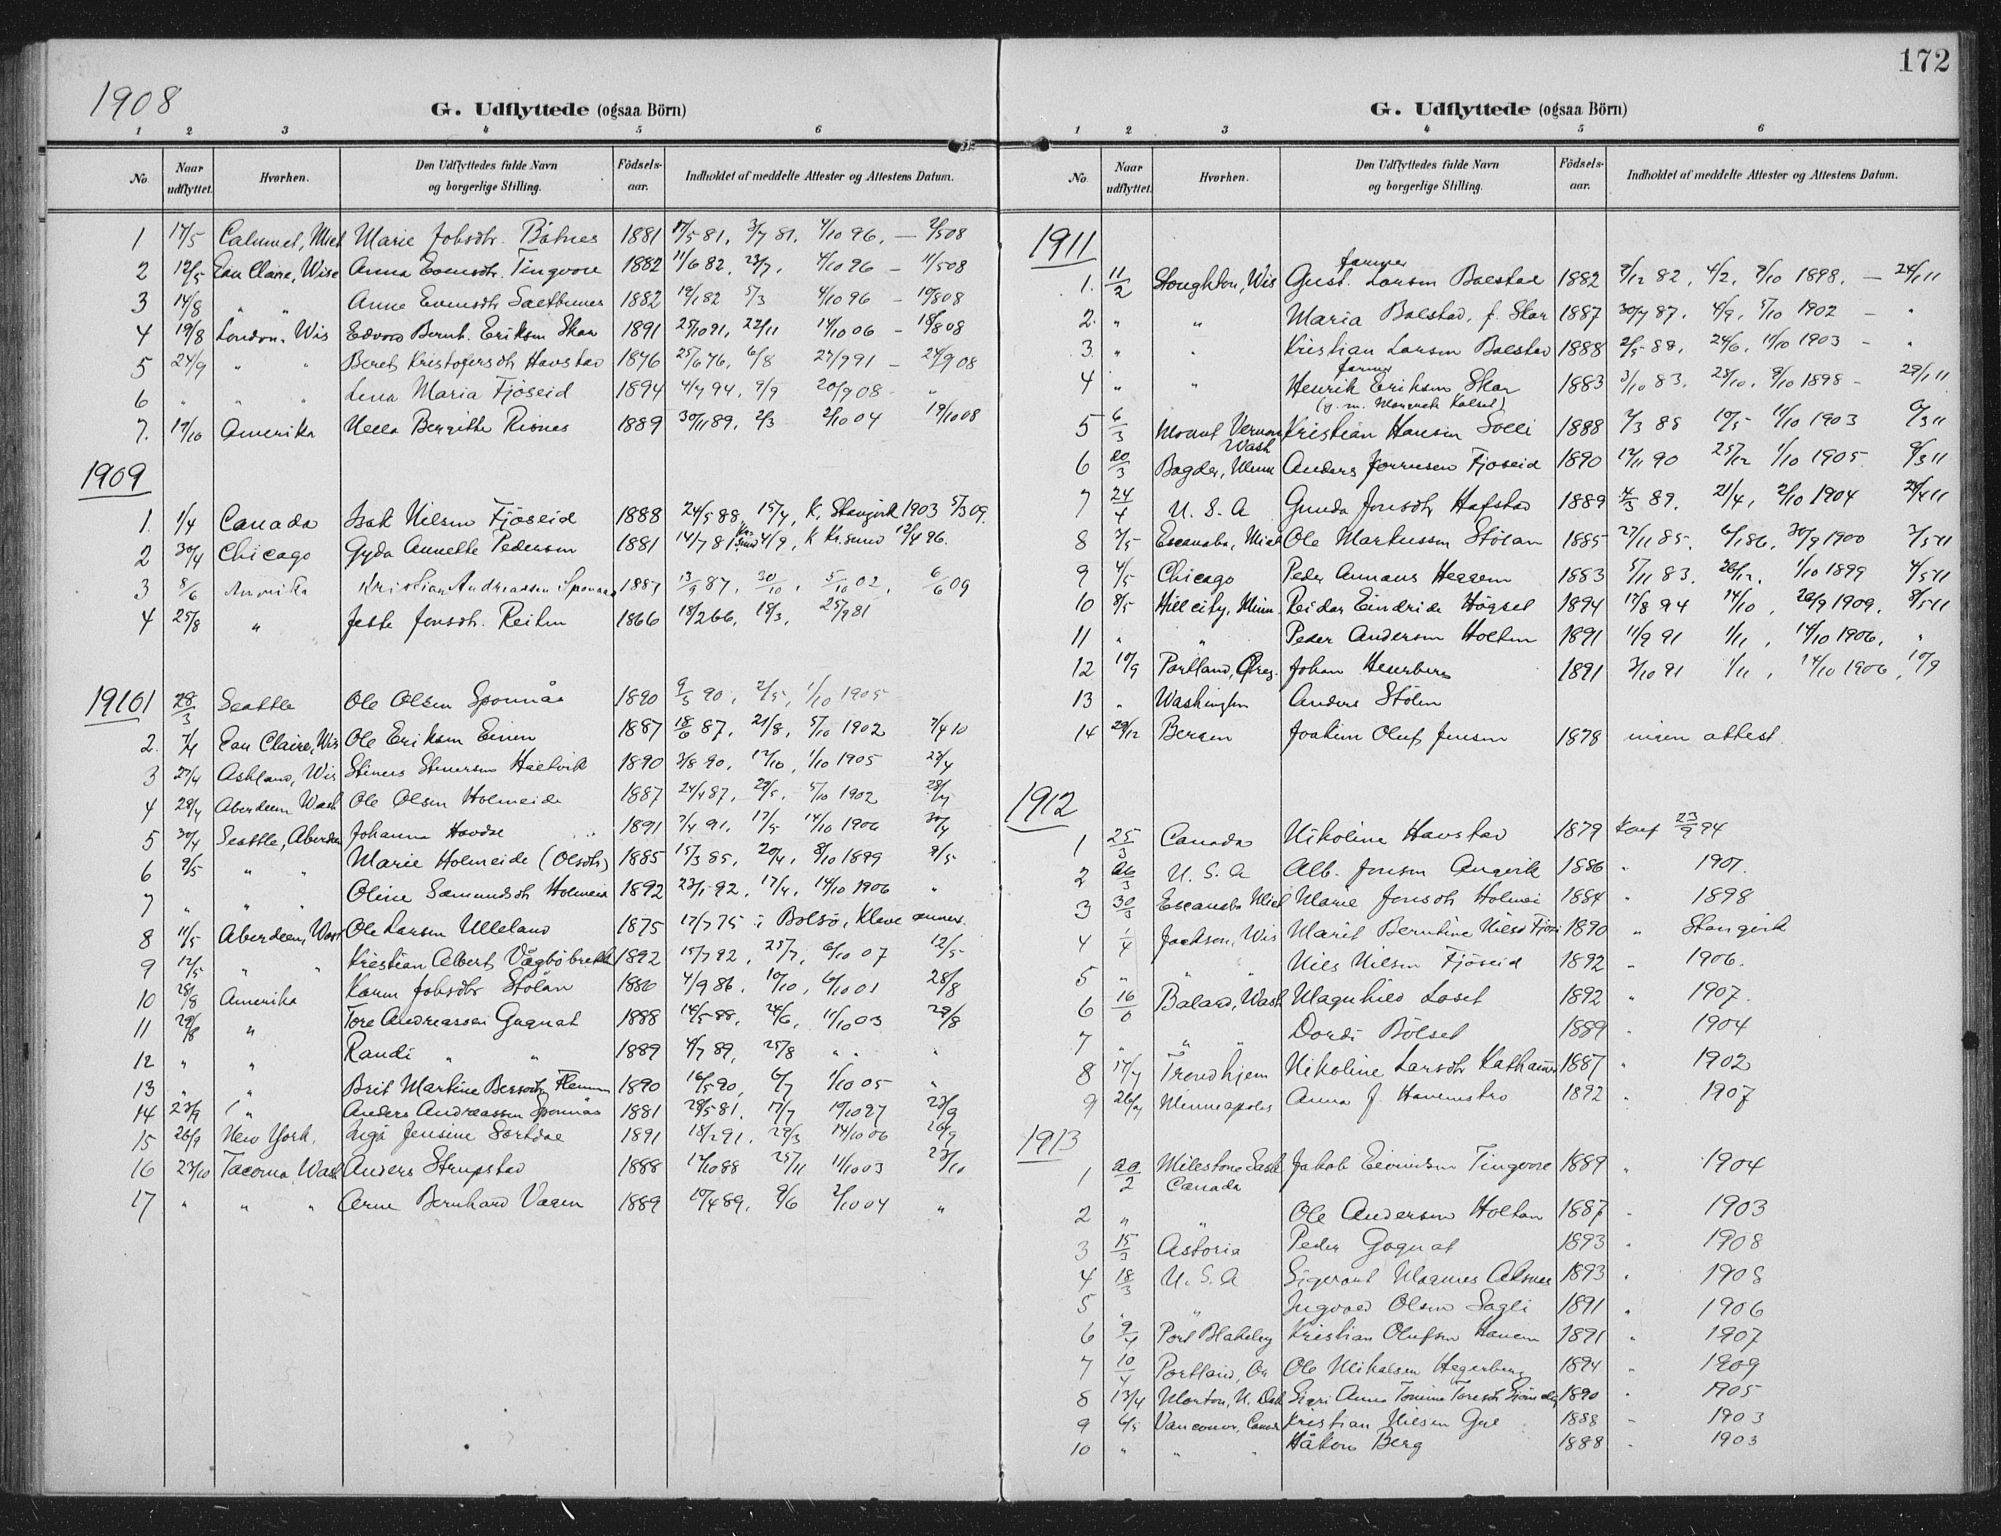 172
1908
G. Udflyttede (ogsaa Börn)
1 2 3 4 5 6
No. Naar udflyttet. Hvorhen. Den Udflyttedes fulde Navn og borgerlige Stilling. Födsels-aar. Indholdet af meddelte Attester og Attestens Datum.
1 17/5 Calumet, Mich Marie Jobsdtr. Båtnes 1881 17/5 81, 3/7 81, 4/10 96, — 2/5 08
2 12/5 Eau Claire, Wisc Anna Evensdtr. Tingvore 1882 11/6 82, 23/7, 4/10 96 — 11/5 08
3 14/8 " " Anne Evensdtr 1882 19/1 82 5/3 4/10 96 — 10/8 08
4 19/8 London, Wis Edvard Bernt. Eriksen Skar 1891 25/10 91, 22/11 14/10 06 — 18/8 08
5 24/9 " " Beret Kristofersdtr Havstad 1846 25/6 46, 6/8 27/9 91 — 24/9 08
6 " " " Lena Maria Fjöseid 1894 4/7 94, 9/9 20/9 08 - "
7. 19/10 Amerika Bergitte Risnes 1889 30/11 89, 2/3 2/10 04 19/10 08
1909
1. 1/4 Canada Isak Nilsen Fjöseid 1888 24/5 88, 15/7, K. Stangvik 1903 5/3 09.
2 30/4 Chicago Gyda Annette Pedersen 1881 14/7 81 Kr.sund 4/9, K Kr.sund 12/4 96.
3 8/6 Amerika Kristian Andreassen Sponnås 1887 13/9 87, 30/10, 5/10 02, 6/6 09
4 25/8 " Jonsdtr. Reiten 1866 18/2 66, 18/3, 25/9 81
1910 1 28/3 Seattle Ole Olsen Sponnås 1890 9/3 90, 2/5, 1/10 1905
2. 7/4 Eau Claire, Wis Ole Eriksen Einen 1887 18/6 87, 21/8, 5/10 1902 7/4 10
3 27/4 Ashland, Wis Steners Stenersen 1890 3/8 90, 12/10, 1/10 1905 23/4
4 28/4 Aberdeen Wash Ole Olsen Holmeide 1887 24/4 87, 29/5, 5/10 1902 28/4
5 30/4 Seattle, Aberdeen Johanna Hovde 1891 7/4 91, 17/5 14/10 1906 30/4
6 9/5 " " Marie Holmeide (Olsdtr) 1885 15/3 85, 20/4, 8/10 1899 9/5
7 " " " Oline Samundsdtr Holmeid 1892 23/1 92, 17/4, 14/10 1906 "
8 11/5 Aberdeen, Wash Ole Larsen Ulleland 1875 17/7 75 i Bolsö, Kleve annex.
9 12/5 " " Kristian Albert Vågböbrekk 1892 15/7 92, 25/7, 6/10 07 12/5
10 28/8 Amerika Karen Jobsdtr Stölån 1886 4/9 86, 10/10, 6/10 01 28/8
11 29/8 " Tore Andreassen Gagnat 1888 14/5 88, 24/6, 11/10 03 29/8
12 " " Randi " " 1889 4/7 89, 25/8 " " "
13 " " Brit Martine Bersdtr Flemmen 1890 16/5 90, 6/7 1/10 05 "
14 23/9 " Anders Andreassen Sponnås 1881 28/5 81, 17/7 19/10 97 23/9
15 26/9 New York. Inga Jensine Sortdae 1891 18/2 91, 29/3 14/10 06 26/9
16 23/10 Tacoma Wash Anders Strupstad 1888 14/10 88 25/11 11/10 03 23/10
17 " " " Arne Bernhard Vaagen 1889 10/4 89, 9/6 2/10 04 "
G. Udflyttede (ogsaa Börn)
1 2 3 4 5 6
No. Naar udflyttet. Hvorhen. Den Udflyttedes fulde Navn og borgerlige Stilling. Födsels-aar. Indholdet af meddelte Attester og Attestens Datum.
1911
farmer
1. 11/2 Stoughton, Wis Gust. Larsen Bolstad 1882 9/12 82, 4/2, 9/10 1898. — 24/1 11
2. " " Maria Bolstad, f. Skar 1887 30/7 87, 4/9, 5/10 1902 — "
3. " " Kristian Larsen Bolstad 1888 2/5 88, 24/6, 11/10 1903 — "
farmer
4 " " Henrik Eriksen Skar 1883 3/10 83, 28/10, 9/10 1898 - 28/1 11
(g. m. Margrete Kalset)
5 6/3 Mount Vernon Wash Kristian Hansen Solli 1888 7/3 88 10/5 11/10 1903 6/3 11
6 20/3 Bagder, Minn Anders Fjoseid 1890 12/11 90 25/12 1/10 1905 9/3 11
7 24/4 U. S. A Gunda Jonsdtr Hafstad 1889 4/3 89. 21/4, 2/10 1904 24/4 11
8 3/5 Escanaba, Mich Ole Markussen Stölan 1885 27/11 85. 6/1 86, 30/9 1900 3/5 11
9 4/5 Chicago Peder Annæus Heggem 1883 5/11 83. 26/12, 1/10 1899 4/5 11
10 8/5 Hill city, Minn. Reidar Eindride Högset 1894 17/8 94 14/10, 26/9 1909, 8/5 11
11 " " Peder Andersen Holten 1891 11/9 91 1/11, 14/10 1906, "
12 10/9 Portland, Oreg. Johan Hegerberg 1891 3/10 91 1/11, 14/10 1906, 10/9
13 " Washington Anders Stölen
14 29/12 Bergen Joakim Oluf Jensen 1878 ingen attest
1912
1 25/3 Canada Nikoline Havstad 1879 Konf 23/9 94
2 26/3 U. S. A Alb. Jonsen Angvik 1886 " 1901.
3 30/3 Escanaba Mich Marie Jonsdtr Holmei 1884 " 1898
4 1/4 Jackson, Wis Marit Berntine Nilsd Fjös 1890 " Stangvik
5 " " " Nils Nilsen Fjöseid 1892 " 1906.
6 16/6 Balard, Wash Magnhild Loset 1892 " 1907.
7 " " " Dordi Bölset 1889 " 1904
8 17/7 Trondhjem Nikoline Larsdtr 1887 " 1902
9 26/7 Minneapolis Anna J. 1892 " 1907
1913
1 20/2 Milestone Sask Canada Jakob Eivindsen Tingvore 1889 " 1904
2 " " Ole Andersen Holten 1887 " 1903
3 15/3 Astoria Peder Gagnat 1893 " 1908
4 18/3 U. S. A Sigvard Magnus 1893 " 1908
5 " " Ingvald Olsen Sagli 1891 " 1906
6 9/4 Port Blakeley Kristian Olufsen Hanem 1891 " 1907
7 10/4 Portland, Or Ole Mikalsen Hegerberg 1894 " 1909
8 13/4 Morton, N. Dak Siari Anna Tomine Toresdtr 1890 " 1905
9 6/5 Vancouver, Canad Kristian Nilsen Gyl 1888 " 1903
10 " " " Håkon Berg 1888 " 1903